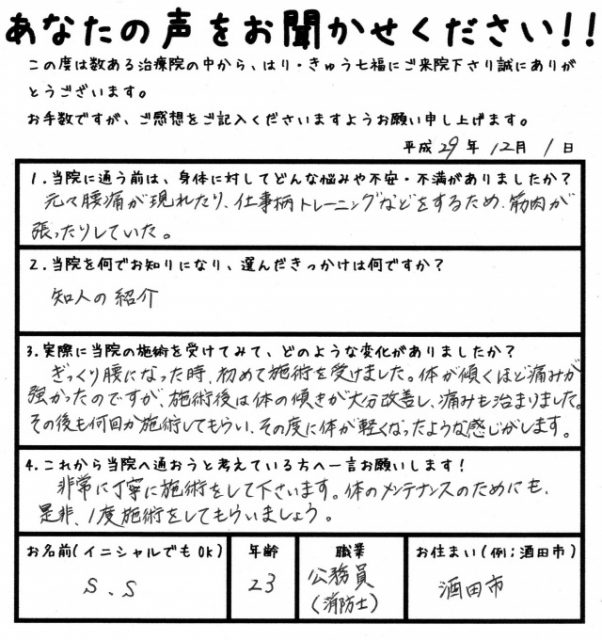 あなたの声をお聞かせください!!
この度は数ある治療院の中から、はり・きゅう七福にご来院下さり誠にありが
とうございます。
お手数ですが、ご感想をご記入くださいますようお願い申し上げます。
平成 29 年 12月 1 日
1.当院に通う前は、身体に対してどんな悩みや不安・不満がありましたか?
元々腰痛が現れたり、仕事柄トレーニングなどをするため、筋肉が
張ったりしていた。
2.当院を何でお知りになり、選んだきっかけは何ですか?
知人の紹介
3.実際に当院の施術を受けてみて、どのような変化がありましたか?
ぎっくり腰になった時、初めて施術を受けました。体が傾くほど痛みが
強かったのですが、施術後は体の傾きが大分改善し、痛みも治まりました。
その後も何回か施術してもらい、その度に体が軽くなったような感じがします。
4.これから当院へ通おうと考えている方へ一言お願いします!
非常に丁寧に施術をして下さいます。体のメンテナンスのためにも、
是非、1度施術をしてもらいましょう。
お名前(イニシャルでもOK) 年齢 職業 お住まい(例;酒田市)
S.S 23 公務員 酒田市
(消防士)